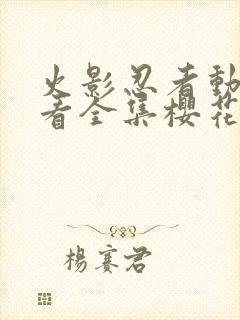 火影忍者動
看全集櫻花
楊賽君